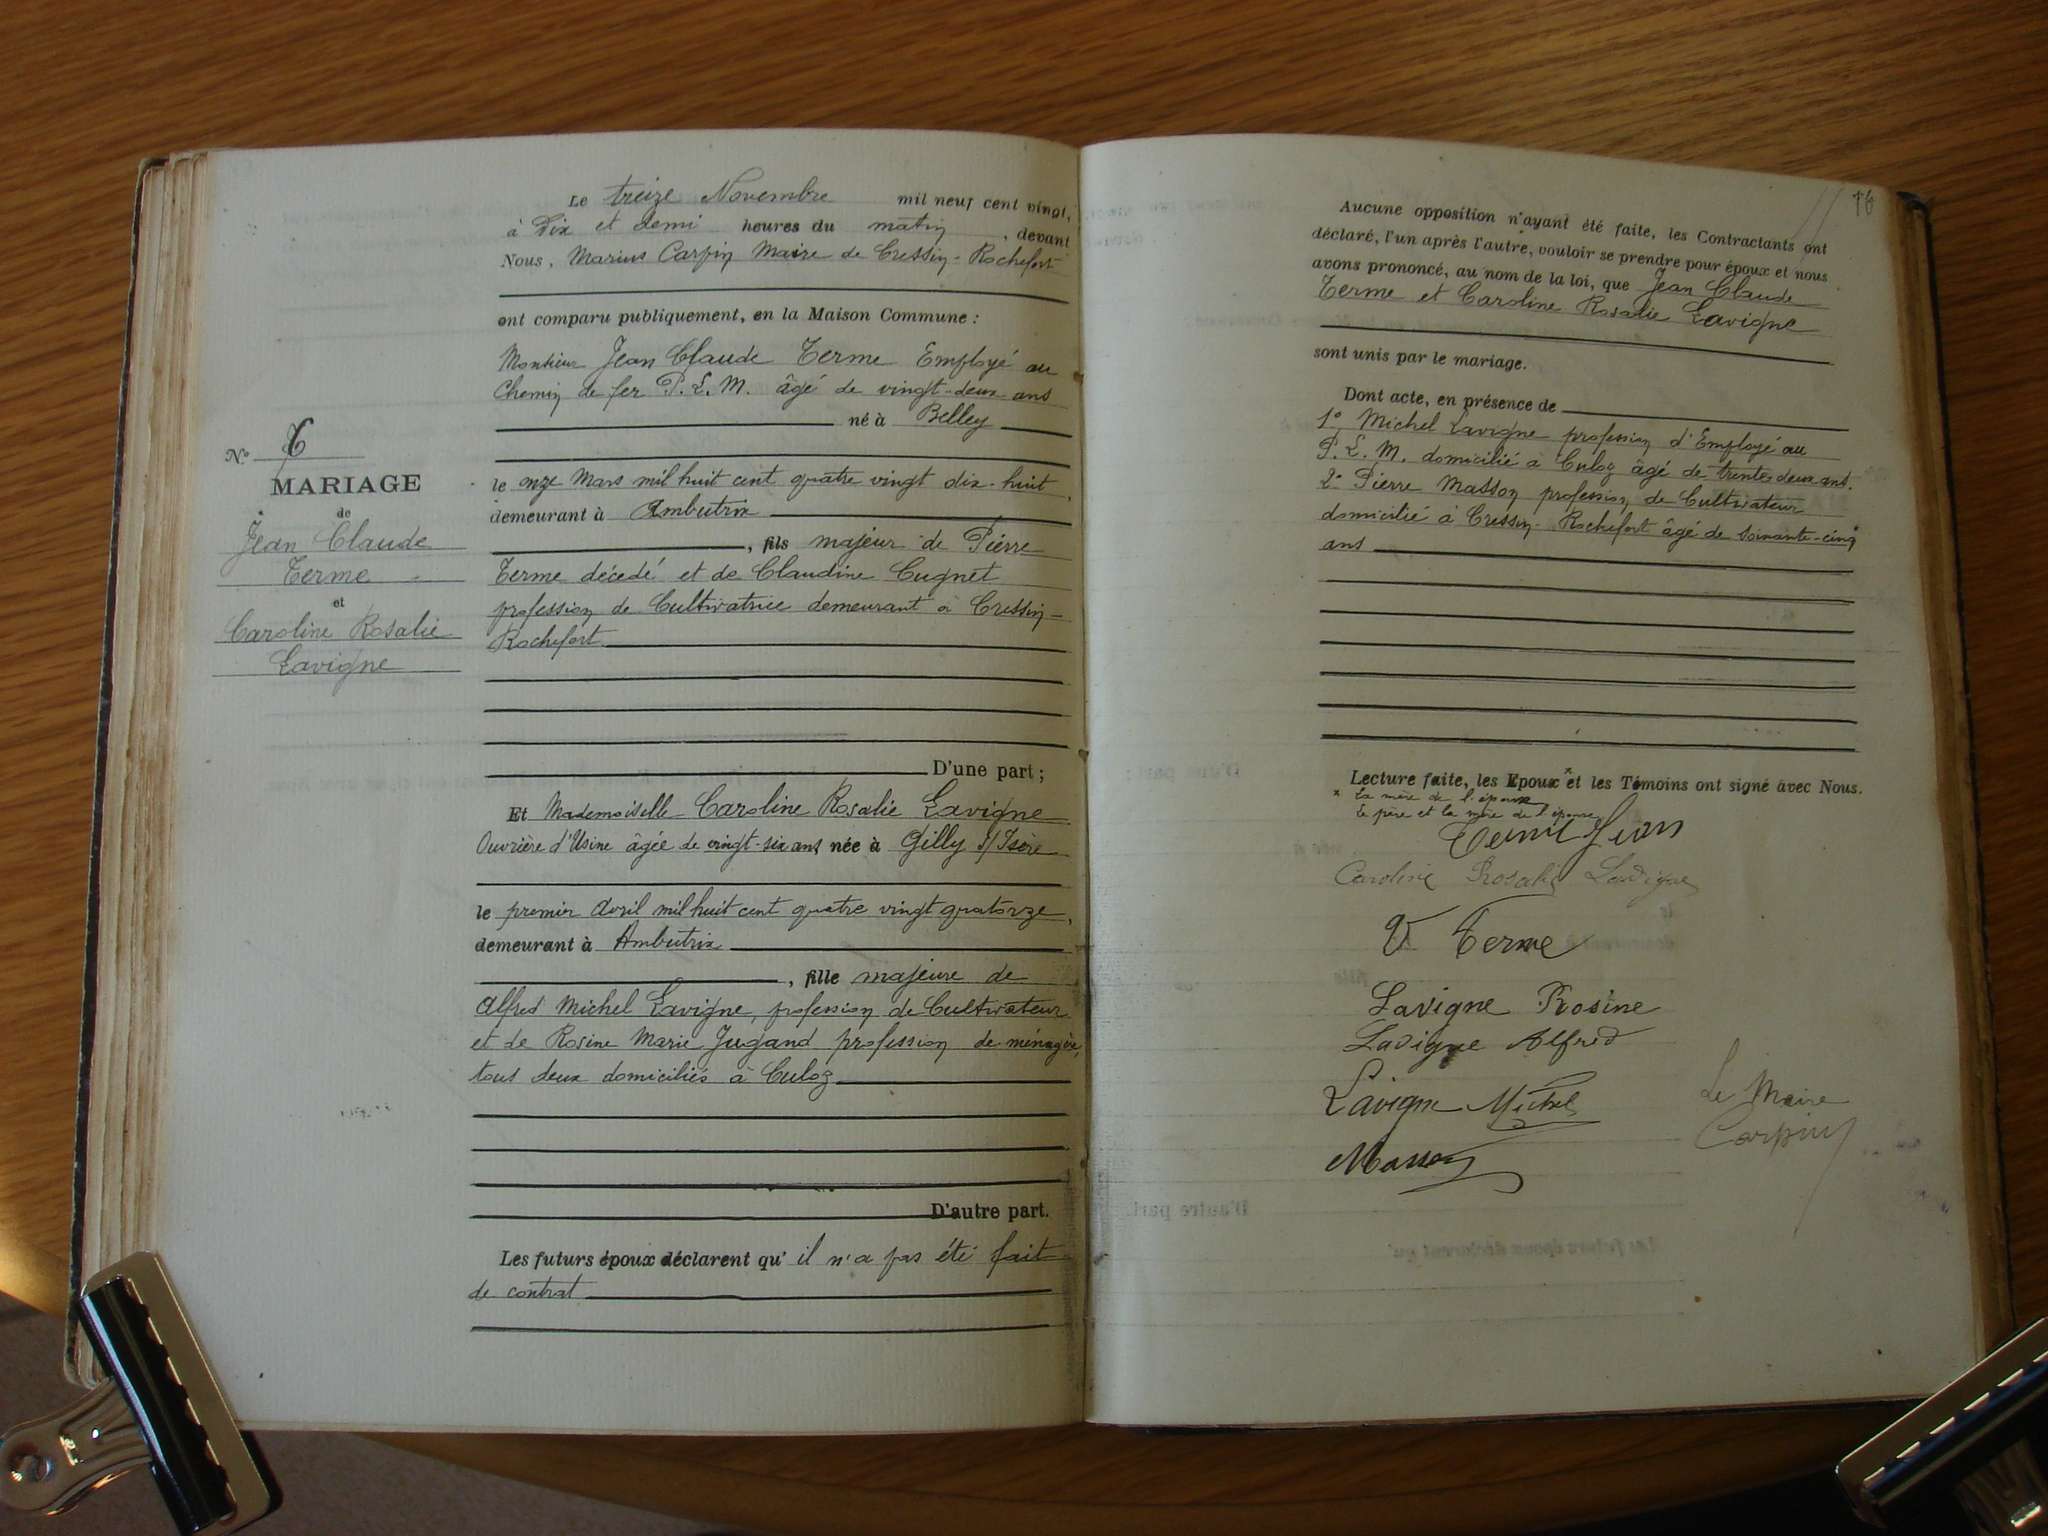 Le treize Novembre mil neuf cent vingt,
à Dix et demi heures du matin, devant
Nous, Marius Carpin Maire de Cressin-Rochefort
ont comparu publiquement, en la Maison Commune :
Monsieur Jean Claude Terme Employé au
Chemin de fer P.L.M. âgé de vingt-deux ans
né à Belley
le onze Mars mil huit cent quatre vingt dix-huit,
demeurant à Ambutrix
, fils majeur de Pierre
Terme décedé et de Claudine Cugnet
profession de Cultivatrice demeurant à Cressin-
Rochefort
D'une part ;
Et Mademoiselle Caroline Rosalie Lavigne
Ouvrière d'Usine âgée de vingt-six ans née à Gilly s/Isère
le premier Avril mil huit cent quatre vingt quatorze,
demeurant à Ambutrix
, fille majeure de
Alfred Michel Lavigne, profession de Cultivateur
et de Rosine Marie Jugand profession de ménagère,
tous deux domiciliés à Culoz
D'autre part.
Les futurs époux déclarent qu'il n'a pas été fait
de contrat
No 6
MARIAGE
de
Jean Claude
Terme
et
Caroline Rosalie
Lavigne
16
Aucune opposition n'ayant été faite, les Contractants ont
déclaré, l'un après l'autre, vouloir se prendre pour époux et nous
avons prononcé, au nom de la loi, que Jean Claude
Terme et Caroline Rosalie Lavigne
sont unis par le mariage.
Dont acte, en présence de
1° Michel Lavigne profession d'Employé au
P.L.M. domicilié à Culoz âgé de trente deux ans.
2° Pierre Masson profession de Cultivateur
domicilié à Cressin-Rochefort âgé de soixante-cinq
ans
Lecture faite, les Epoux * et les Témoins ont signé avec Nous.
* La mère de l'époux
Le père et la mère de l'épouse
Terme Jean
Caroline Rosalie Lavigne
V Terme
Lavigne Rosine
Lavigne Alfred
Lavigne Michel
Masson
Le Maire
Carpin